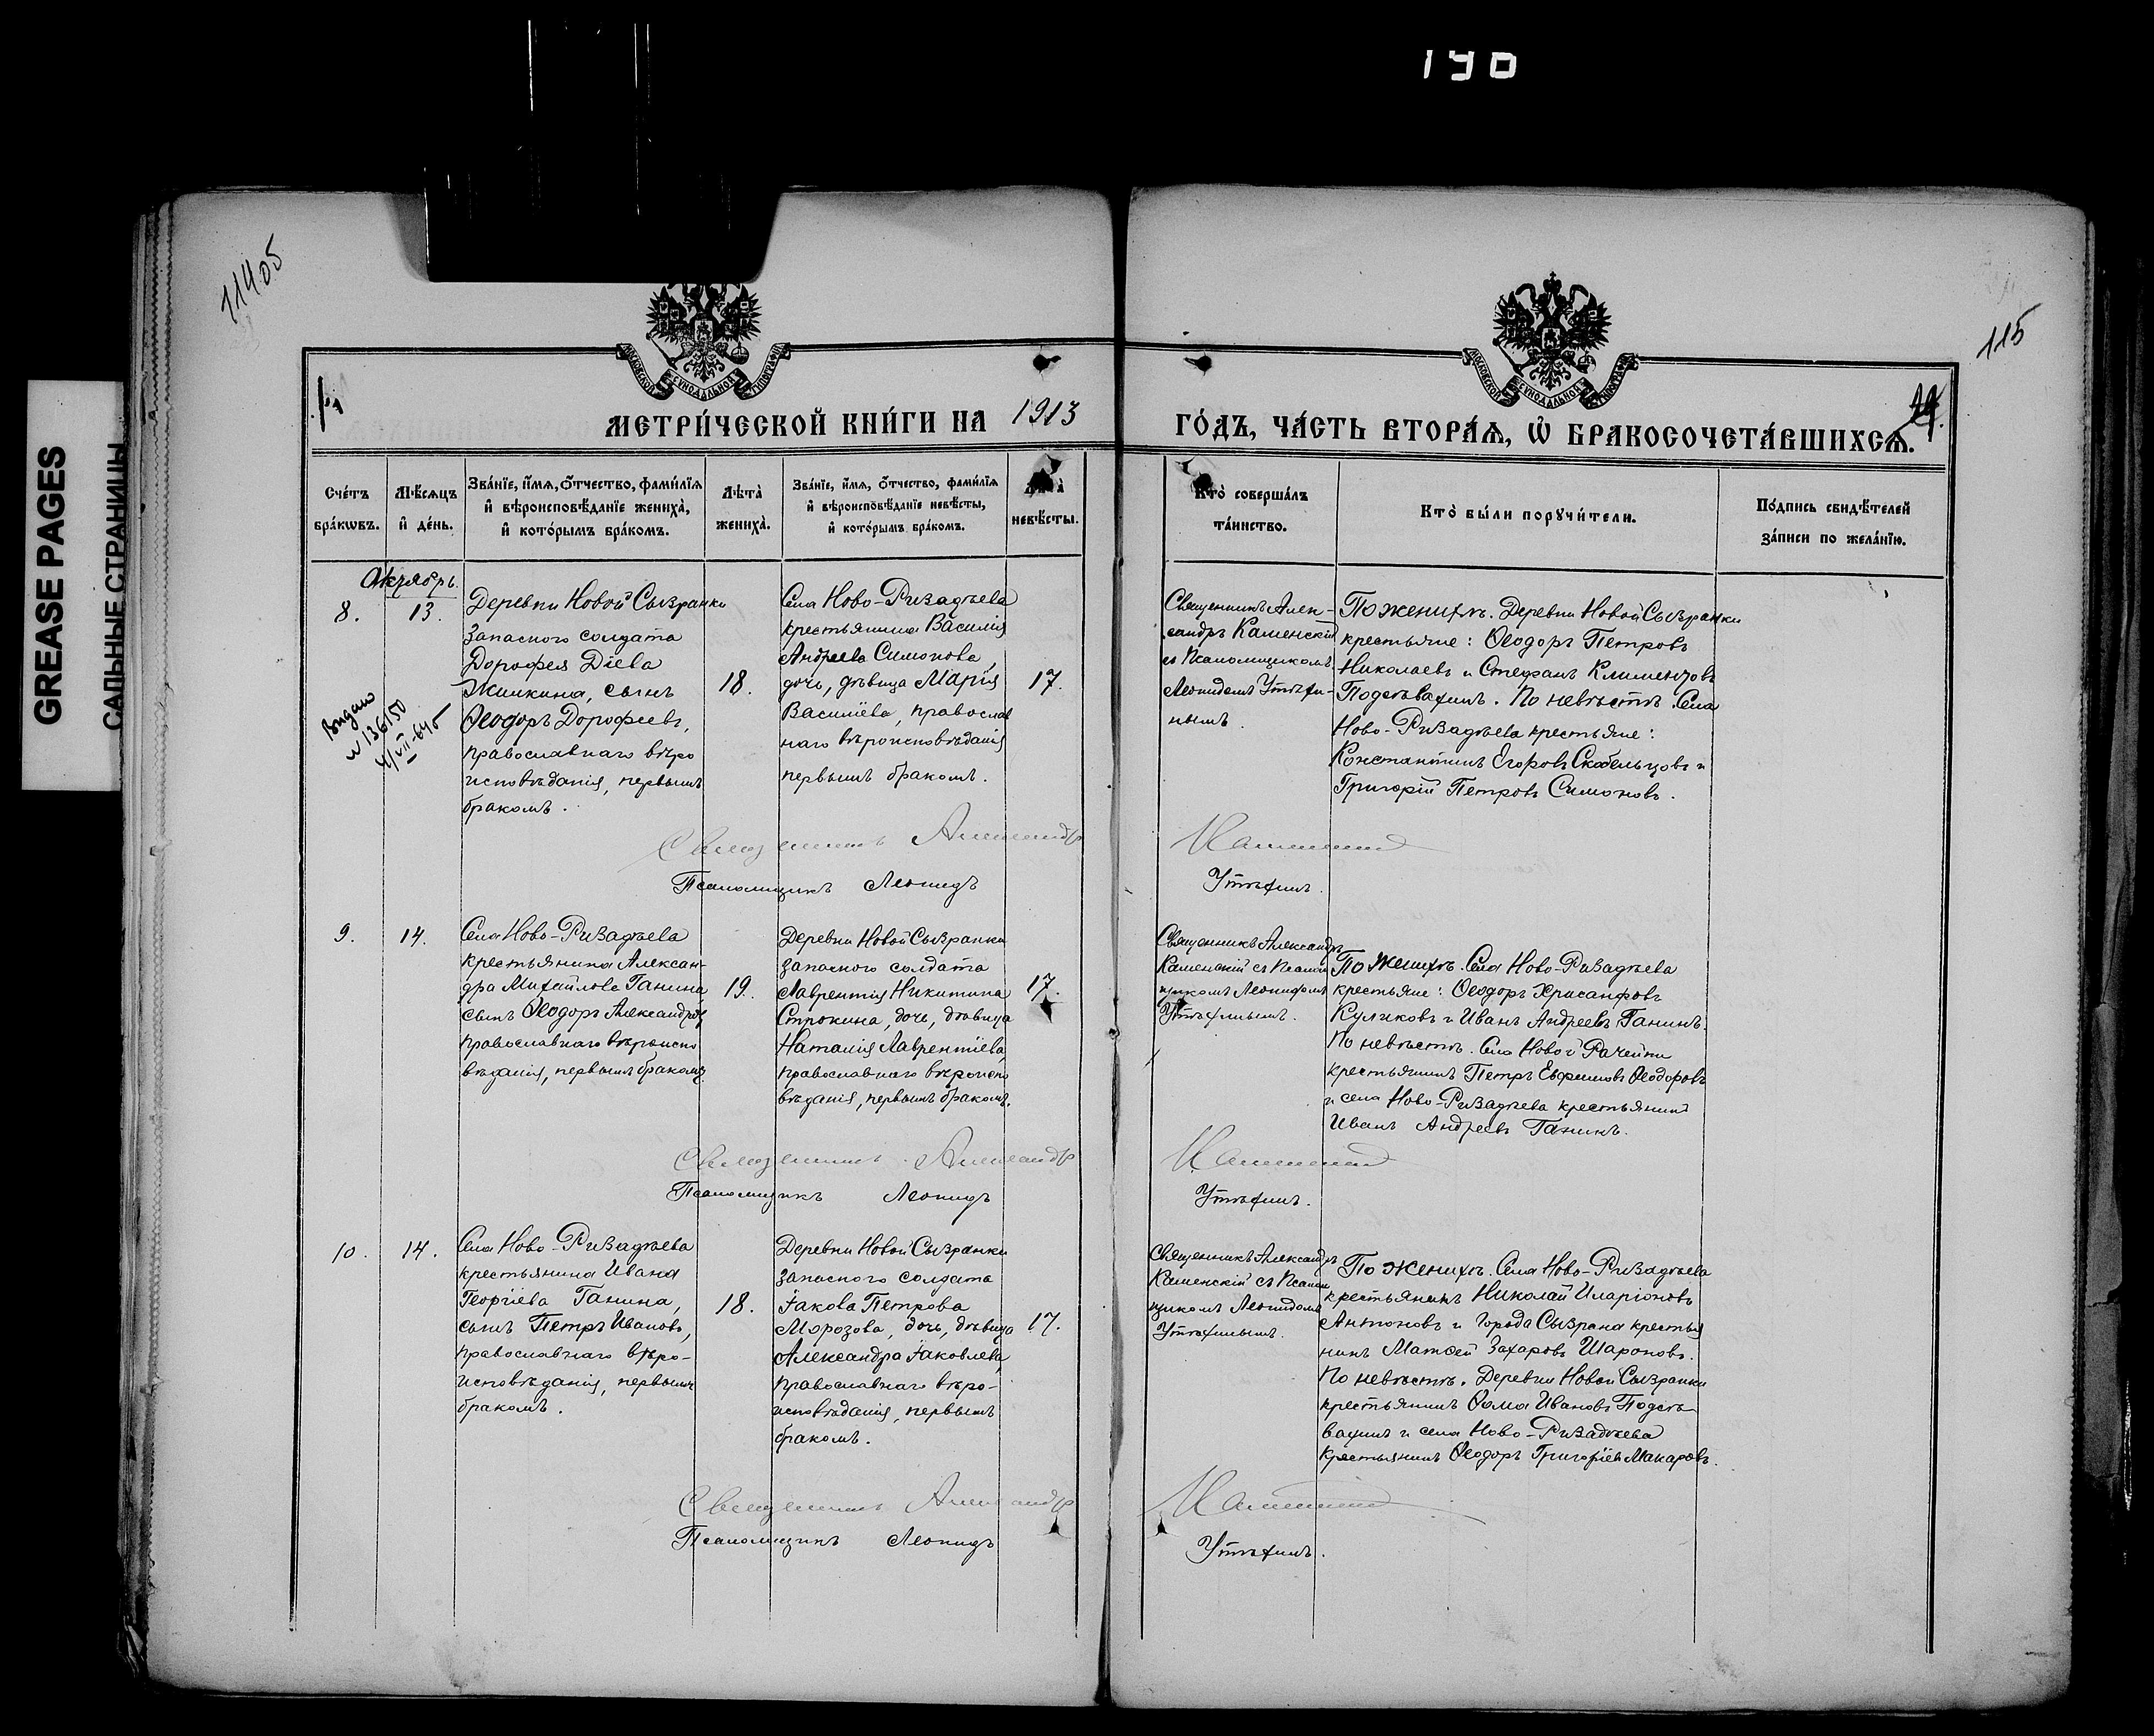 190
GREASE PAGES
САЛЬНЫЕ СТРАНИЦЫ
11405
115
МОСКОВСКОЙ СѴНОДАЛЬНОЙ ТѴПОГРАФІИ
МОСКОВСКОЙ СѴНОДАЛЬНОЙ ТѴПОГРАФІИ
МЕТРИ́ЧЕСКОЙ КНИ́ГИ НА 1913
ГО́ДЪ, ЧА́СТЬ ВТОРА́Ѧ, Ѡ҆ БРАКОСОЧЕТА́ВШИХСѦ.
Сче́тъ
бра́кѡвъ.
Мѣ́сѧцъ
и҆ де́нь.
Зва́нїе, и҆́мѧ, ѻ҆́тчество, фами́лїѧ
и҆ вѣроисповѣ́данїе жениха̀,
и҆ кото́рымъ бра́комъ.
Лѣта̀
жениха̀.
Зва́нїе, и҆́мѧ, ѻ҆́тчество, фами́лїѧ
и҆ вѣроисповѣ́данїе невѣ́сты,
и҆ кото́рымъ бра́комъ.
Лѣта̀
невѣ́сты.
Кто̀ соверша́лъ
та́инство.
Кто̀ бы́ли порꙋчи́тели.
По́дпись свидѣ́телей
за́писи по жела́нїю.
Октябрь.
8.
13.
Выдано
№ 136150
4/VII-645
Деревни Новой Сызранки
запаснаго солдата
Дорофея Діева
Жилкина, сынъ
Ѳеодоръ Дорофеевъ,
православнаго вѣро
исповѣданія, первымъ
бракомъ.
18.
Села Ново-Ризадѣева
крестьянина Василія
Андреева Симонова,
дочь, дѣвица Марія
Василіева, православ
наго вѣроисповѣданія
первымъ бракомъ.
17.
Священникъ Алек-
сандръ Каменскій
съ Псаломщикомъ
Леонидомъ Утѣхи-
нымъ.
По женихѣ. Деревни Новой Сызранки
крестьяне: Ѳеодоръ Петровъ
Николаевъ и Стефанъ Климентовъ
Подсѣвахинъ. По невѣстѣ. Села
Ново-Ризадѣева крестьяне:
Константинъ Егоровъ Скобельцовъ и
Григорій Петровъ Симоновъ.
Священникъ Александръ Каменскій
Псаломщикъ Леонидъ Утѣхинъ.
9.
14.
Села Ново-Ризадѣева
крестьянина Алексан-
дра Михайлова Ганина
сынъ Ѳеодоръ Александровъ
православнаго вѣроиспо
вѣданія, первымъ бракомъ.
19.
Деревни Новой Сызранки
запаснаго солдата
Лаврентія Никитина
Строкина, дочь, дѣвица
Наталія Лаврентіева,
православнаго вѣроиспо
вѣданія, первымъ бракомъ.
17.
Священникъ Александръ
Каменскій съ Псалом
щикомъ Леонидомъ
Утѣхинымъ.
По женихѣ. Села Ново-Ризадѣева
крестьяне: Ѳеодоръ Хрисанфовъ
Куликовъ и Иванъ Андреевъ Ганинъ.
По невѣстѣ. Села Новой Рачейки
крестьянинъ Петръ Евфимовъ Ѳеодоровъ
и села Ново-Ризадѣева крестьянинъ
Иванъ Андреевъ Ганинъ.
Священникъ Александръ Каменскій
Псаломщикъ Леонидъ Утѣхинъ.
10.
14.
Села Ново-Ризадѣева
крестьянина Ивана
Георгіева Ганина,
сынъ Петръ Ивановъ,
православнаго вѣро-
исповѣданія, первымъ
бракомъ.
18.
Деревни Новой Сызранки
запаснаго солдата
Іакова Петрова
Морозова, дочь, дѣвица
Александра Іаковлева,
православнаго вѣро-
исповѣданія, первымъ
бракомъ.
17.
Священникъ Александръ
Каменскій съ Псалом
щикомъ Леонидомъ
Утѣхинымъ.
По женихѣ. Села Ново-Ризадѣева
крестьянинъ Николай Иларіоновъ
Антоновъ и города Сызрана крестья
нинъ Матѳей Захаровъ Шароновъ.
По невѣстѣ. Деревни Новой Сызранки
крестьянинъ Ѳома Ивановъ Подсѣ-
вахинъ и села Ново-Ризадѣева
крестьянинъ Ѳеодоръ Григоріевъ Макаровъ.
Священникъ Александръ Каменскій
Псаломщикъ Леонидъ Утѣхинъ.